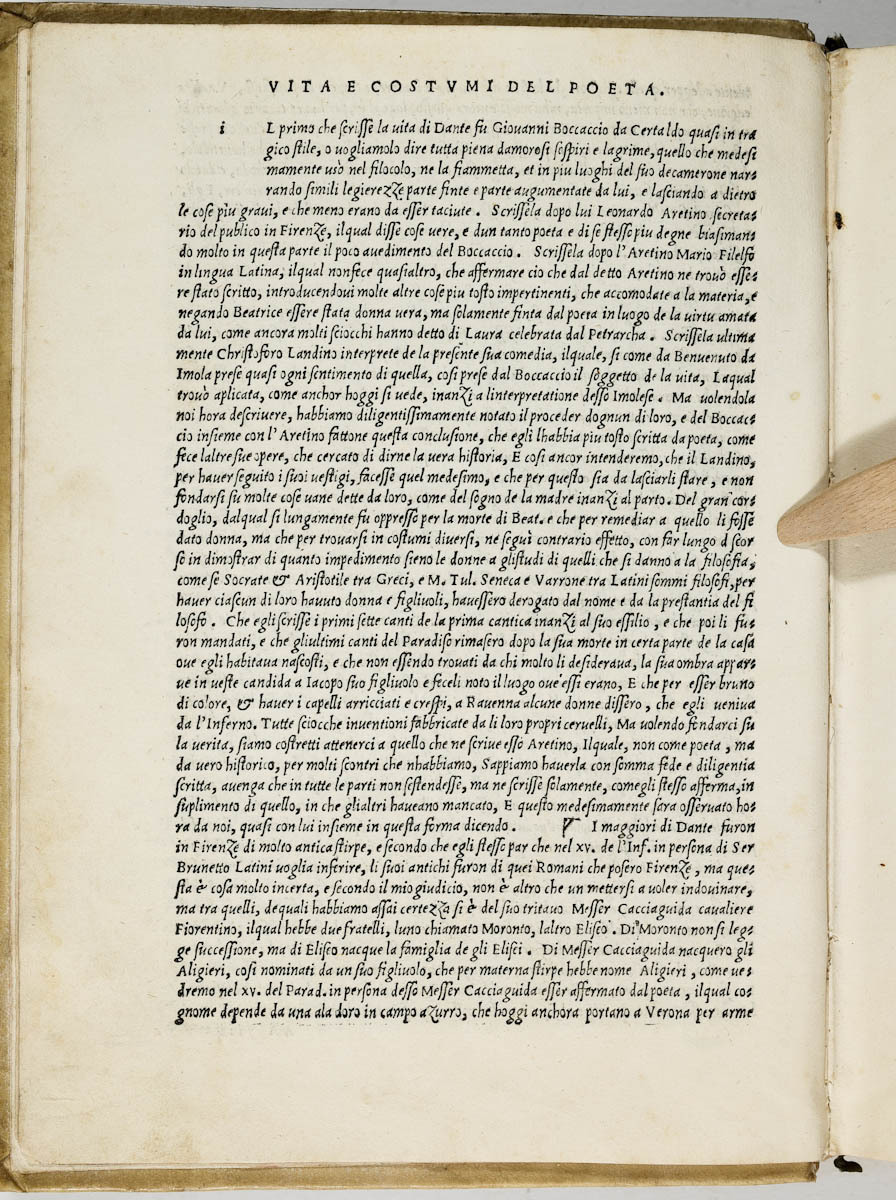 VITA E COSTVMI DEL POETA.
i L primo che scrisse la uita di Dante fu Giouanni Boccaccio da Certaldo quasi in tra
gico stile, o uogliamolo dire tutta piena damorosi sospiri e lagrime, quello che medesi
mamente usò nel filocolo, ne la fiammetta, et in piu luoghi del suo decamerone nar=
rando simili legierezze parte finte e parte augumentate da lui, e lasciando a dietro
le cose più graui, e che meno erano da esser taciute. Scrissela dopo lui Leonardo Aretino secreta=
rio del publico in Firenze, ilqual disse cose uere, e dun tanto poeta e di se stesso piu degne biasiman=
do molto in questa parte il poco auedimento del Boccaccio. Scrissela dopo l'Aretino Mario Filelfo
in lingua Latina, ilqual non fece quasi altro, che affermare cio che dal detto Aretino ne trouò esse=
re stato scritto, introducendoui molte altre cose piu tosto impertinenti, che accomodate a la materia, e
negando Beatrice essere stata donna uera, ma solamente finta dal poeta in luogo de la uirtu amata
da lui, come ancora molti sciocchi hanno detto di Laura celebrata dal Petrarcha. Scrissela ultima
mente Christoforo Landino interprete de la presente sua comedia, ilquale, si come da Benuenuto da
Imola prese quasi ogni sentimento di quella, cosi prese dal Boccaccio il soggetto de la uita, Laqual
trouò aplicata, come anchor hoggi si uede, inanzi a linterpretatione desso Imolese. Ma uolendola
noi hora descriuere, habbiamo diligentissimamente notato il proceder dognun di loro, e del Boccac=
cio insieme con l'Aretino fattone questa conclusione, che egli lhabbia piu tosto scritta da poeta, come
fece laltre sue opere, che cercato di dirne la uera historia, E cosi ancor intenderemo, che il Landino,
per hauer seguito i suoi uestigi, facesse quel medesimo, e che per questo sia da lasciarli stare, e non
fondarsi su molte cose uane dette da loro, come del sogno de la madre inanzi al parto. Del gran cor=
doglio, dalqual si lungamente fu oppresso per la morte di Beat. e che per remediar a quello li fosse
dato donna, ma che per trouarsi in costumi diuersi, ne seguì contrario effetto, con far lungo discor
so in dimostrar di quanto impedimento sieno le donne a glistudi di quelli che si danno a la filosofia,
come se Socrate & Aristotile tra Greci, e M. Tul. Seneca e Varrone tra Latini sommi filosofi, per
hauer ciascun di loro hauuto donna e figliuoli, hauessero derogato dal nome e da la prestantia del fi
losofo. Che egli scrisse i primi sette canti de la prima cantica inanzi al suo essilio, e che poi li fu=
ron mandati, e che gliultimi canti del Paradiso rimasero dopo la sua morte in certa parte de la casa
oue egli habitaua nascosti, e che non essendo trouati da chi molto li desideraua, la sua ombra appar=
ue in ueste candida a Iacopo suo figliuolo e feceli noto il luogo oue essi erano, E che per esser bruno
di colore, & hauer i capelli arricciati e crespi, a Rauenna alcune donne dissero, che egli ueniua
da l'Inferno. Tutte sciocche inuentioni fabbricate da li loro propri ceruelli, Ma uolendo fondarci su
la uerita, siamo costretti attenerci a quello che ne scriue esso Aretino, Ilquale, non come poeta, ma
da uero historico, per molti scontri che nhabbiamo, Sappiamo hauerla con somma fede e diligentia
scritta, auenga che in tutte le parti non sestendesse, ma ne scrisse solamente, comegli stesso afferma, in
suplimento di quello, in che glialtri haueano mancato, E questo medesimamente sara osseruato ho=
ra da noi, quasi con lui insieme in questa forma dicendo. I maggiori di Dante furon
in Firenze di molto antica stirpe, e secondo che egli stesso par che nel xv. de l'Inf. in persona di Ser
Brunetto Latini uoglia inferire, li suoi antichi furon di quei Romani che posero Firenze, ma que=
sta è cosa molto incerta, e secondo il mio giudicio, non è altro che un mettersi a uoler indouinare,
ma tra quelli, de quali habbiamo assai certezza si è del suo tritauo Messer Cacciaguida caualiere
Fiorentino, ilqual hebbe due fratelli, luno chiamato Moronto, laltro Eliseo. Di Moronto non si leg=
ge successione, ma di Eliseo nacque la famiglia de gli Elisei. Di Messer Cacciaguida nacquero gli
Aligieri, cosi nominati da un suo figliuolo, che per materna stirpe hebbe nome Aligieri, come ue=
dremo nel xv. del Parad. in persona desso Messer Cacciaguida esser affermato dal poeta, ilqual co=
gnome depende da una ala doro in campo azurro, che hoggi anchora portano a Verona per arme